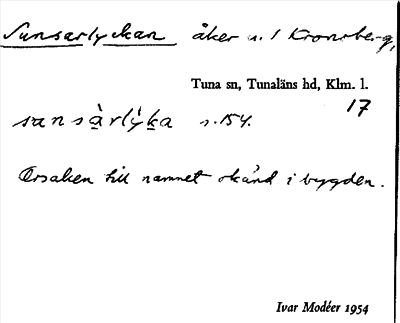 Sunsarlyckan åker u. 1 Kronoberg,
Tuna sn, Tunaläns hd, Klm. l.
17
sansàrlỳka s. 154.
Orsaken till namnet okänd i bygden.
Ivar Modéer 1954